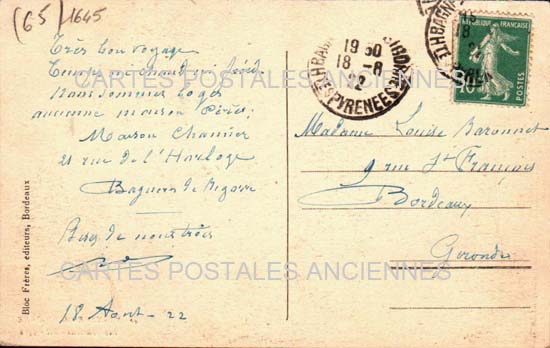 (65) 1645
Très bon voyage
Temps ni chaud ni froid
Nous sommes logés
ancienne maison Pérès,
Maison Charrier
21 rue de l'Horloge
Bagnères de Bigorre
de nous trois
18 Août - 22
Bloc Frères, éditeurs, Bordeaux
19 30
18 - 8
22
PYRENEES
REPUBLIQUE FRANÇAISE
10
POSTES
Madame Louise Baronnet
9 rue St François
Bordeaux
Gironde
CARTES POSTALES ANCIENNES
CARTES POSTALES ANCIENNES